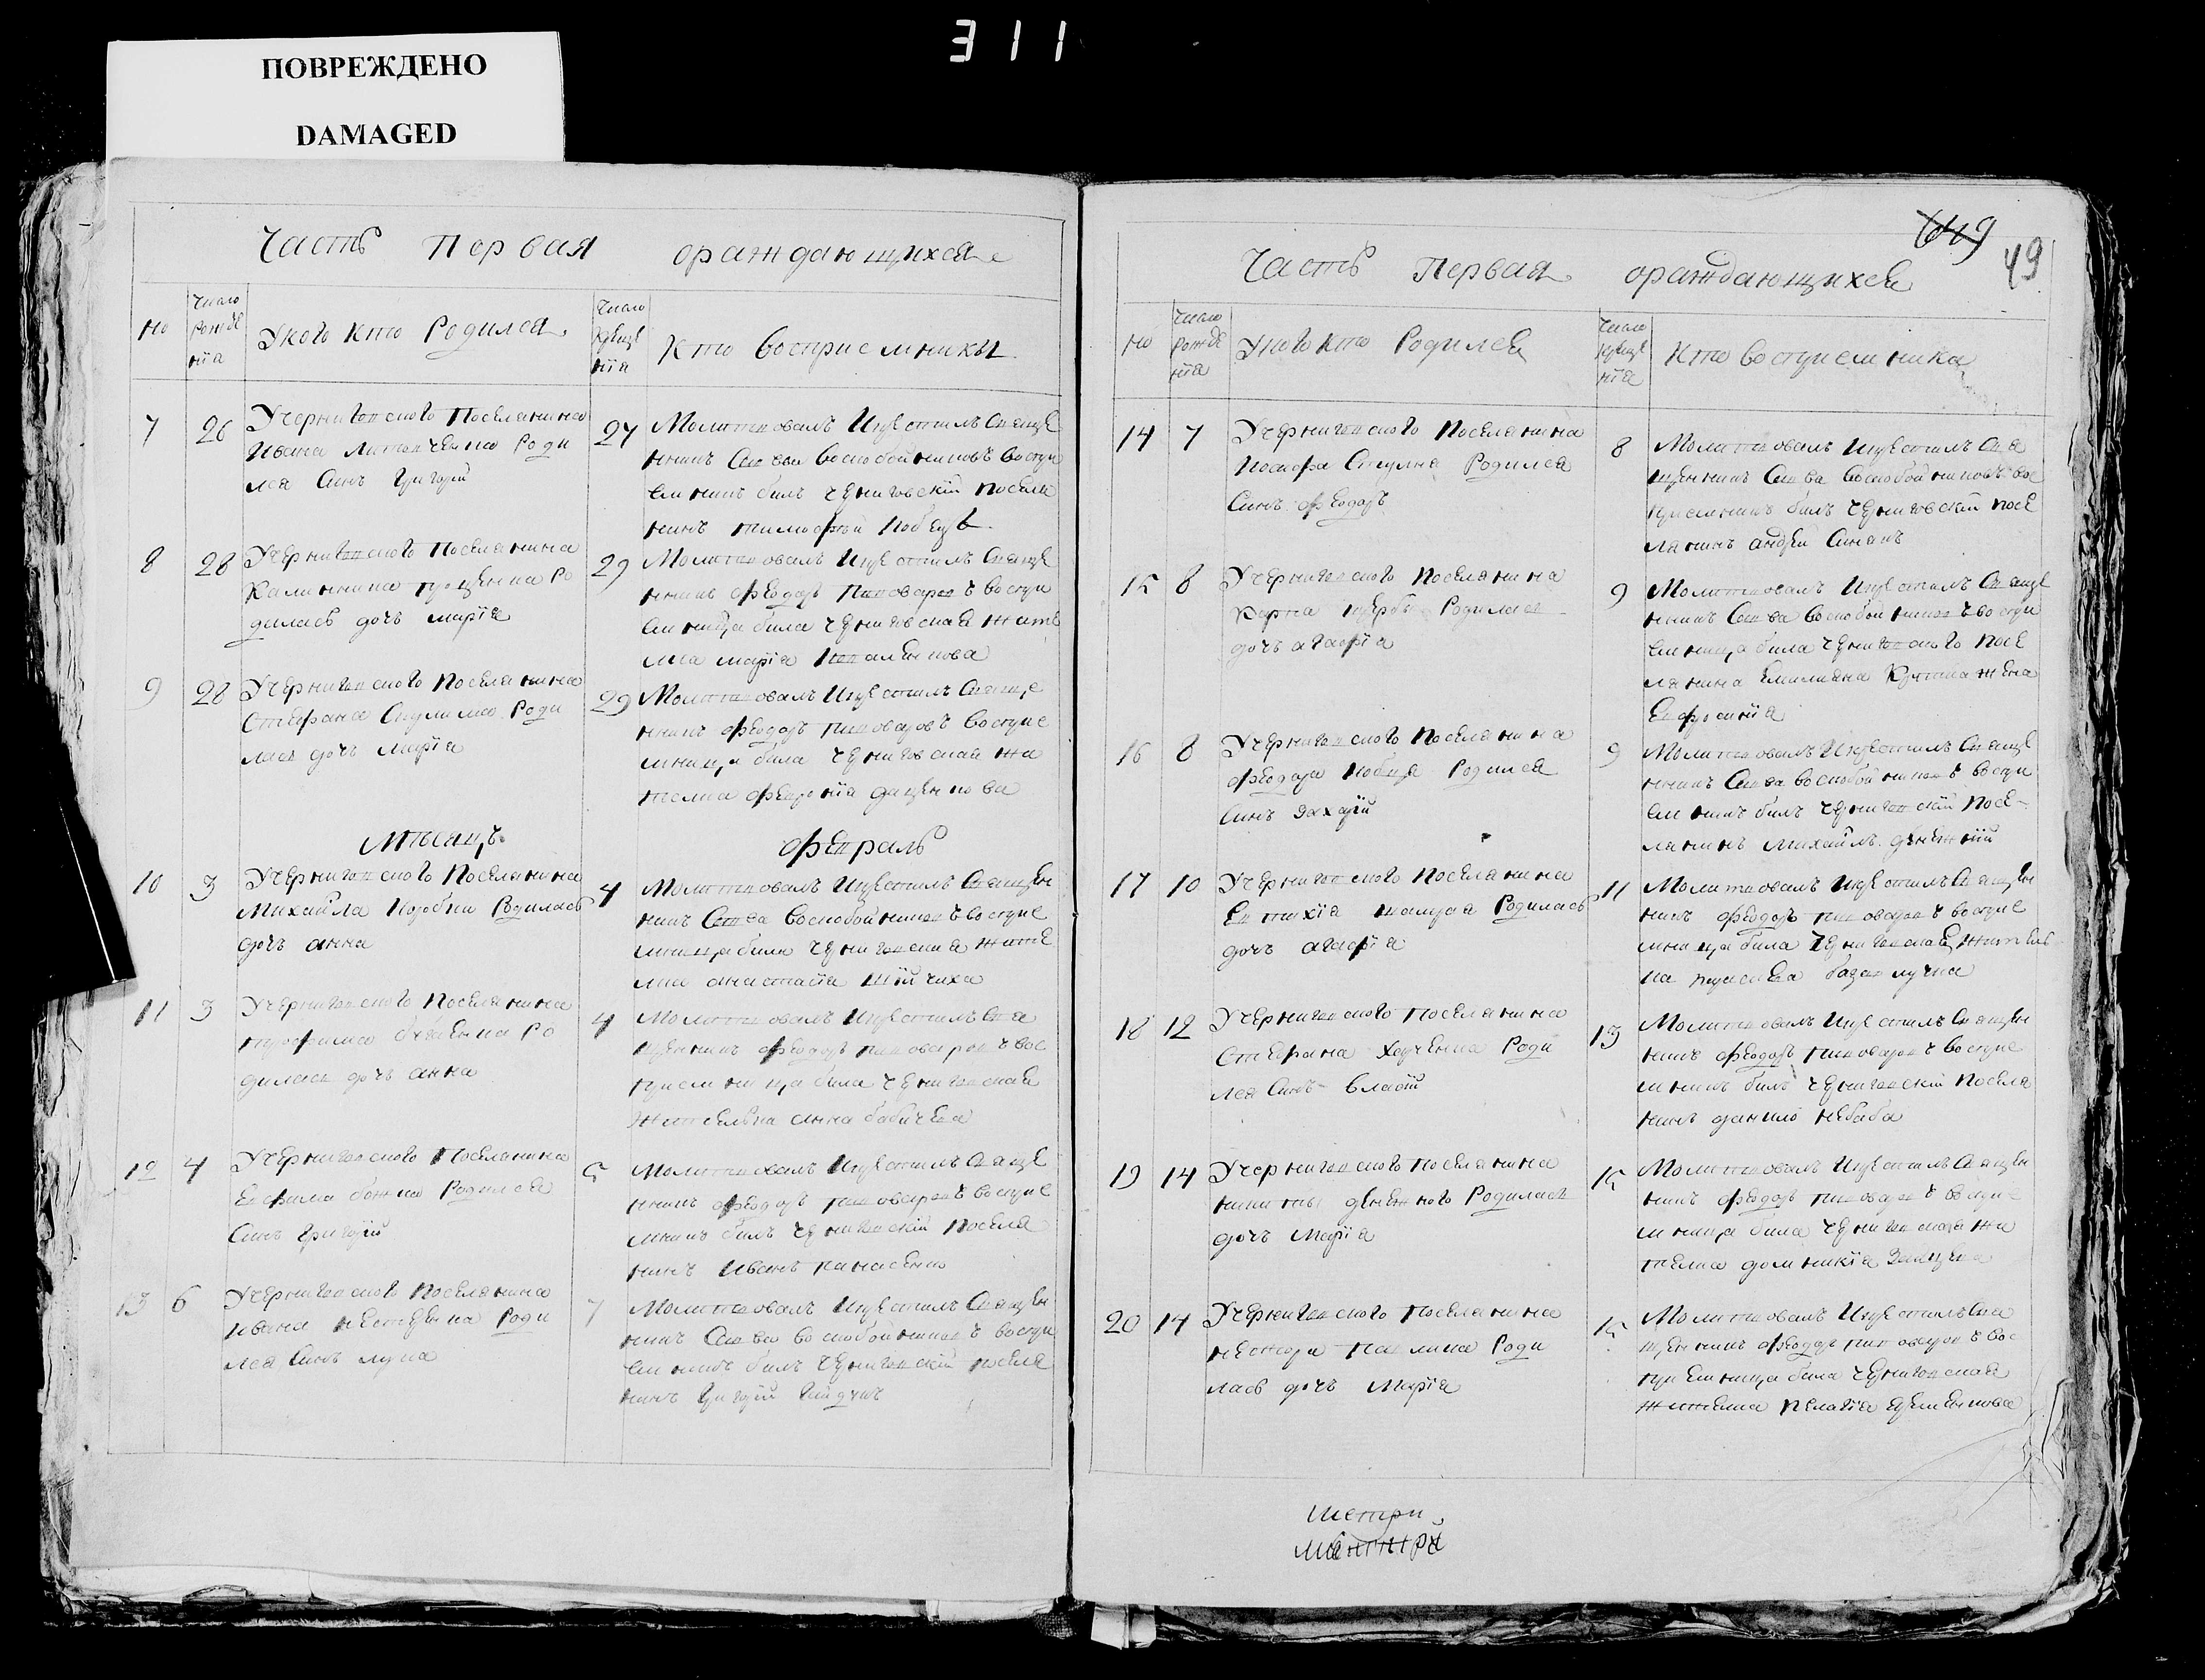 311
ПОВРЕЖДЕНО
DAMAGED
Часть Первая ораждающихся
но
число рожде нїа
Укого кто Родился
число креще нїа
Кто восприемникы
7
26
Учерниговского Поселянина
Ивана Литовченка Роди
лся Синъ Григорїй
27
Молитвовалъ Икрестилъ Свяще
нникъ Савва Воскобойниковъ воспри
емникъ билъ черниговскїй поселя
нинъ тимофей Кобець
8
28
Учерниговского Поселянина
Калинника грощенка Ро
дилась дочь марїа
29
Молитвовалъ Икрестилъ Свяще
нникъ феодоръ Пивоваровъ воспри
емница била черниговская жите
лка марїа Коваленкова
9
28
Учерниговского Поселянина
Стефана Скулима Роди
лась дочь марїа
29
Молитвовалъ Икрестилъ Свяще
нникъ феодоръ пивоваровъ воспре
мница била черниговская жи
телка феуронїа даценкова
Мѣсяцъ
февраль
10
3
Учерниговского Поселянина
Михайла Коробки Родилась
дочь анна
4
Молитвовалъ Икрестилъ Священ
никъ Савва Воскобойниковъ воспре
мница била черниговская жите
лка анастасїа
11
3
Учерниговского Поселянина
трофима Ро
дилась дочь анна
4
Молитвовалъ Икрестилъ Свя
щенникъ феодоръ пивоваровъ вос
приемница била черниговская
жителька анна бабичева
12
4
Учерниговского Поселянина
Евфима божка Родился
Синъ григорїй
5
Молитвовалъ Икрестилъ Свяще
нникъ феодоръ пивоваровъ воспре
мникъ билъ черниговскїй поселя
нинъ Иванъ панасенко
13
6
Учерниговского Поселянина
Ивана нестеренка Роди
лся Синъ лука
7
Молитвовалъ Икрестилъ Священ
никъ Савва воскобойниковъ воспри
емникъ билъ черниговскїй поселя
нинъ григорїй
49
Часть Первая ораждающихся
но
число рожде нїа
Укого кто Родился
число креще нїа
Кто воспрuемника
14
7
Учерниговского Поселянина
Иосифа Родился
Синъ феодоръ
8
Молитвовалъ Икрестилъ Свя
щенникъ Савва Воскобойниковъ вос
приемникъ билъ черниговскїй посе
лянинъ андрей Синакъ
15
8
Учерниговского Поселянина
Карпа щерби Родилась
дочь агафїа
9
Молитвовалъ Икрестилъ Свяще
нникъ Савва Воскобойниковъ воспри
емница била черниговского посе
лянина Емилиана жена
Евфросинїа
16
8
Учерниговского Поселянина
феодора Кобця Родился
Синъ захарїй
9
Молитвовалъ Икрестилъ Свяще
нникъ Савва воскобойниковъ воспри
емникъ билъ черниговскїй посе-
лянинъ Михайлъ денежнїй
17
10
Учерниговского Поселянина
Евтихїа Родилась
дочь агафїа
11
Молитвовалъ Икрестилъ Священ
никъ феодоръ пивоваровъ воспре
мница била черниговская житель
ка
18
12
Учерниговского поселянина
Стефана Харченка Роди
лся Синъ власїй
13
Молитвовалъ Икрестилъ Священ
никъ феодоръ пивоваровъ воспре
мникъ билъ черниговскїй поселя
нинъ данило небаба
19
14
Учерниговского поселянина
никиты денежного Родилась
дочь Марїа
15
Молитвовалъ Икрестилъ Священ
никъ феодоръ пивоваровъ воспре
мница била черниговская жи
телка домникїа
20
14
Учерниговского Поселянина
нестора павлика Роди
лась дочь Марїа
15
Молитвовалъ Икрестилъ Свя
щенникъ феодоръ пивоваровъ вос
приемница била черниговская
жителка пелагїа